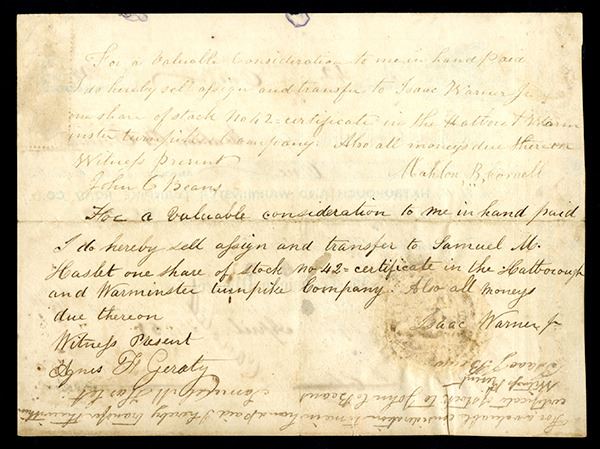 For a Valuable Consideration to me in hand paid
I do hereby sell assign and transfer to Isaac Warner Jr
one share of stock No 42 = certificate in the Hatboro & Warm
inster turnpike Company. Also all moneys due thereon
Witness Present
Mahlon B.
John C Beans
For a Valuable consideration to me in hand paid
I do hereby sell assign and transfer to Samuel M.
Haslet one share of stock no 42 = certificate in the Hatborough
and Warminster turnpike Company. Also all moneys
due thereon
Isaac Warner Jr
Witness Present
Agnes F Geraty
For a valuable consideration to me in hand Paid I hereby transfer the within
certificate of stock to John C Beans
Samuel M Haslet
Witness Present
Isaac J.